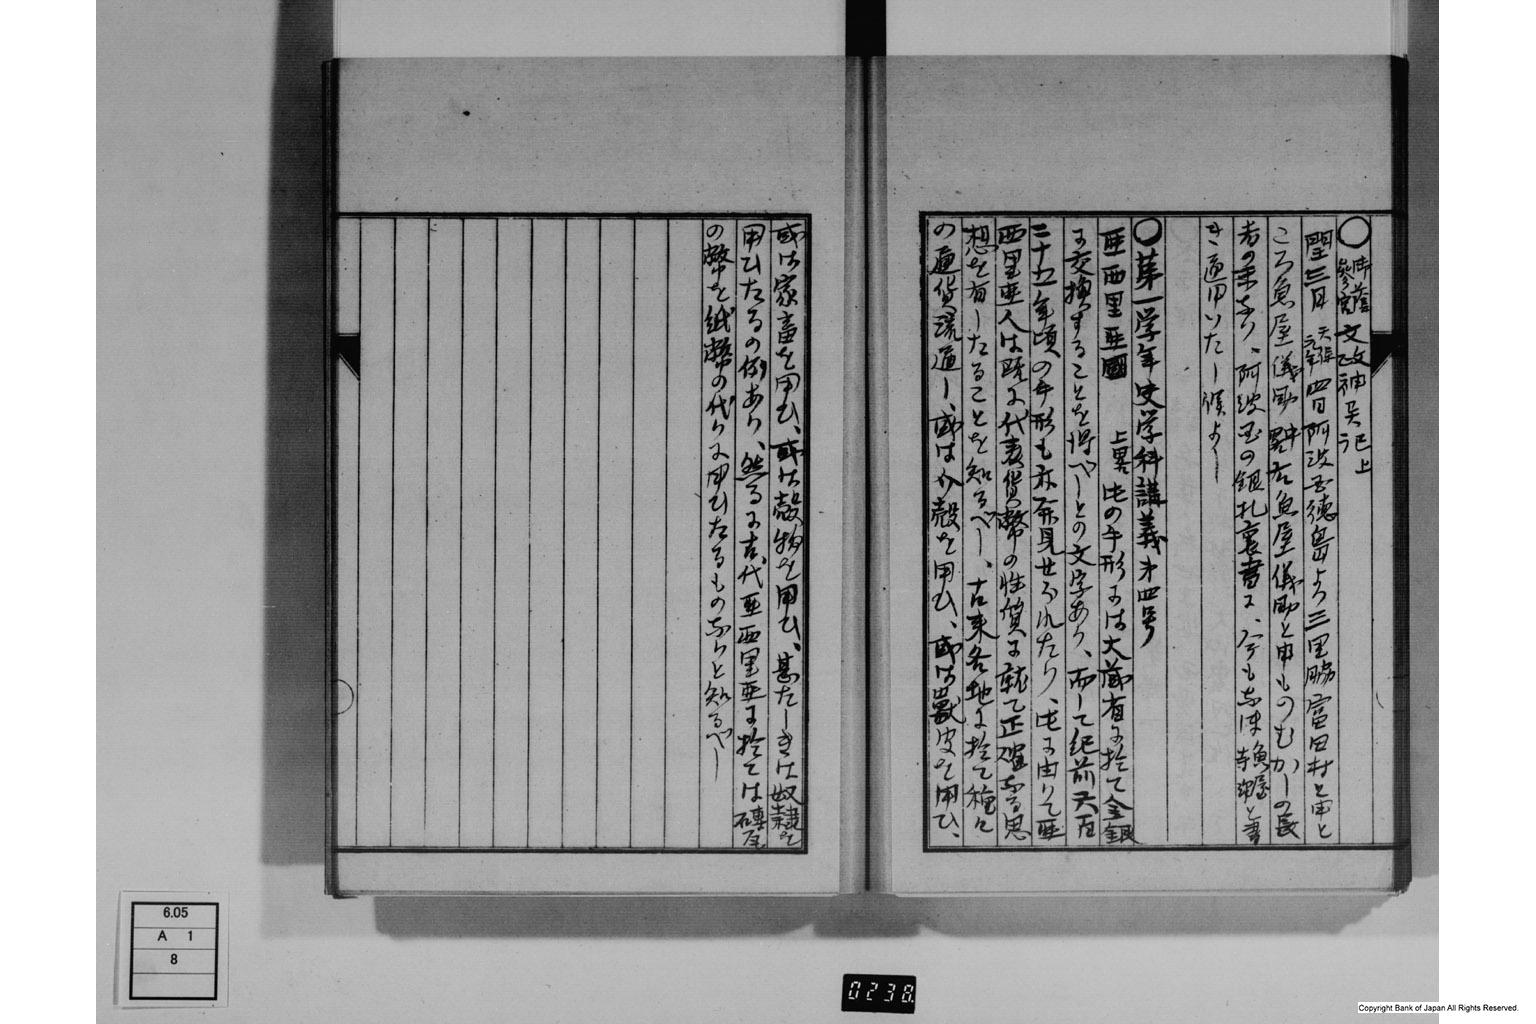 ○御蔭参宮文政神異記上
閏三月天保元年四日阿波国徳島より三里脇富田村と申と
ころ魚屋儀助 右魚屋儀助と申ものむかしの長
者の末なり、阿波国の銀札裏書に、今も なほ魚屋 と書
き通用いたし候よし
○第一学年史学科講義第四号
亜西里亜國 上畧 此の手形には大蔵省に於て金銀
に交換することを得べしとの文字あり、而して紀前六百
二十五年頃の手形も亦發見せられたり、此に由りて亜
西里亜人は既に代表貨幣の性質に就て正確なる思
想を有したることを知るべし、古来各地に於て種々
の通貨流通し、或は介殻を用ひ、或は獣皮を用ひ、
或は家畜を用ひ、或は穀物を用ひ、甚だしきは奴隷を
用ひたるの例あり、然るに古代亜西里亜に於ては磚瓦
の幣を紙幣の代りに用ひたるものなりと知るべし
6.05
A 1
8
0238
Copyright Bank of Japan All Rights Reserved.